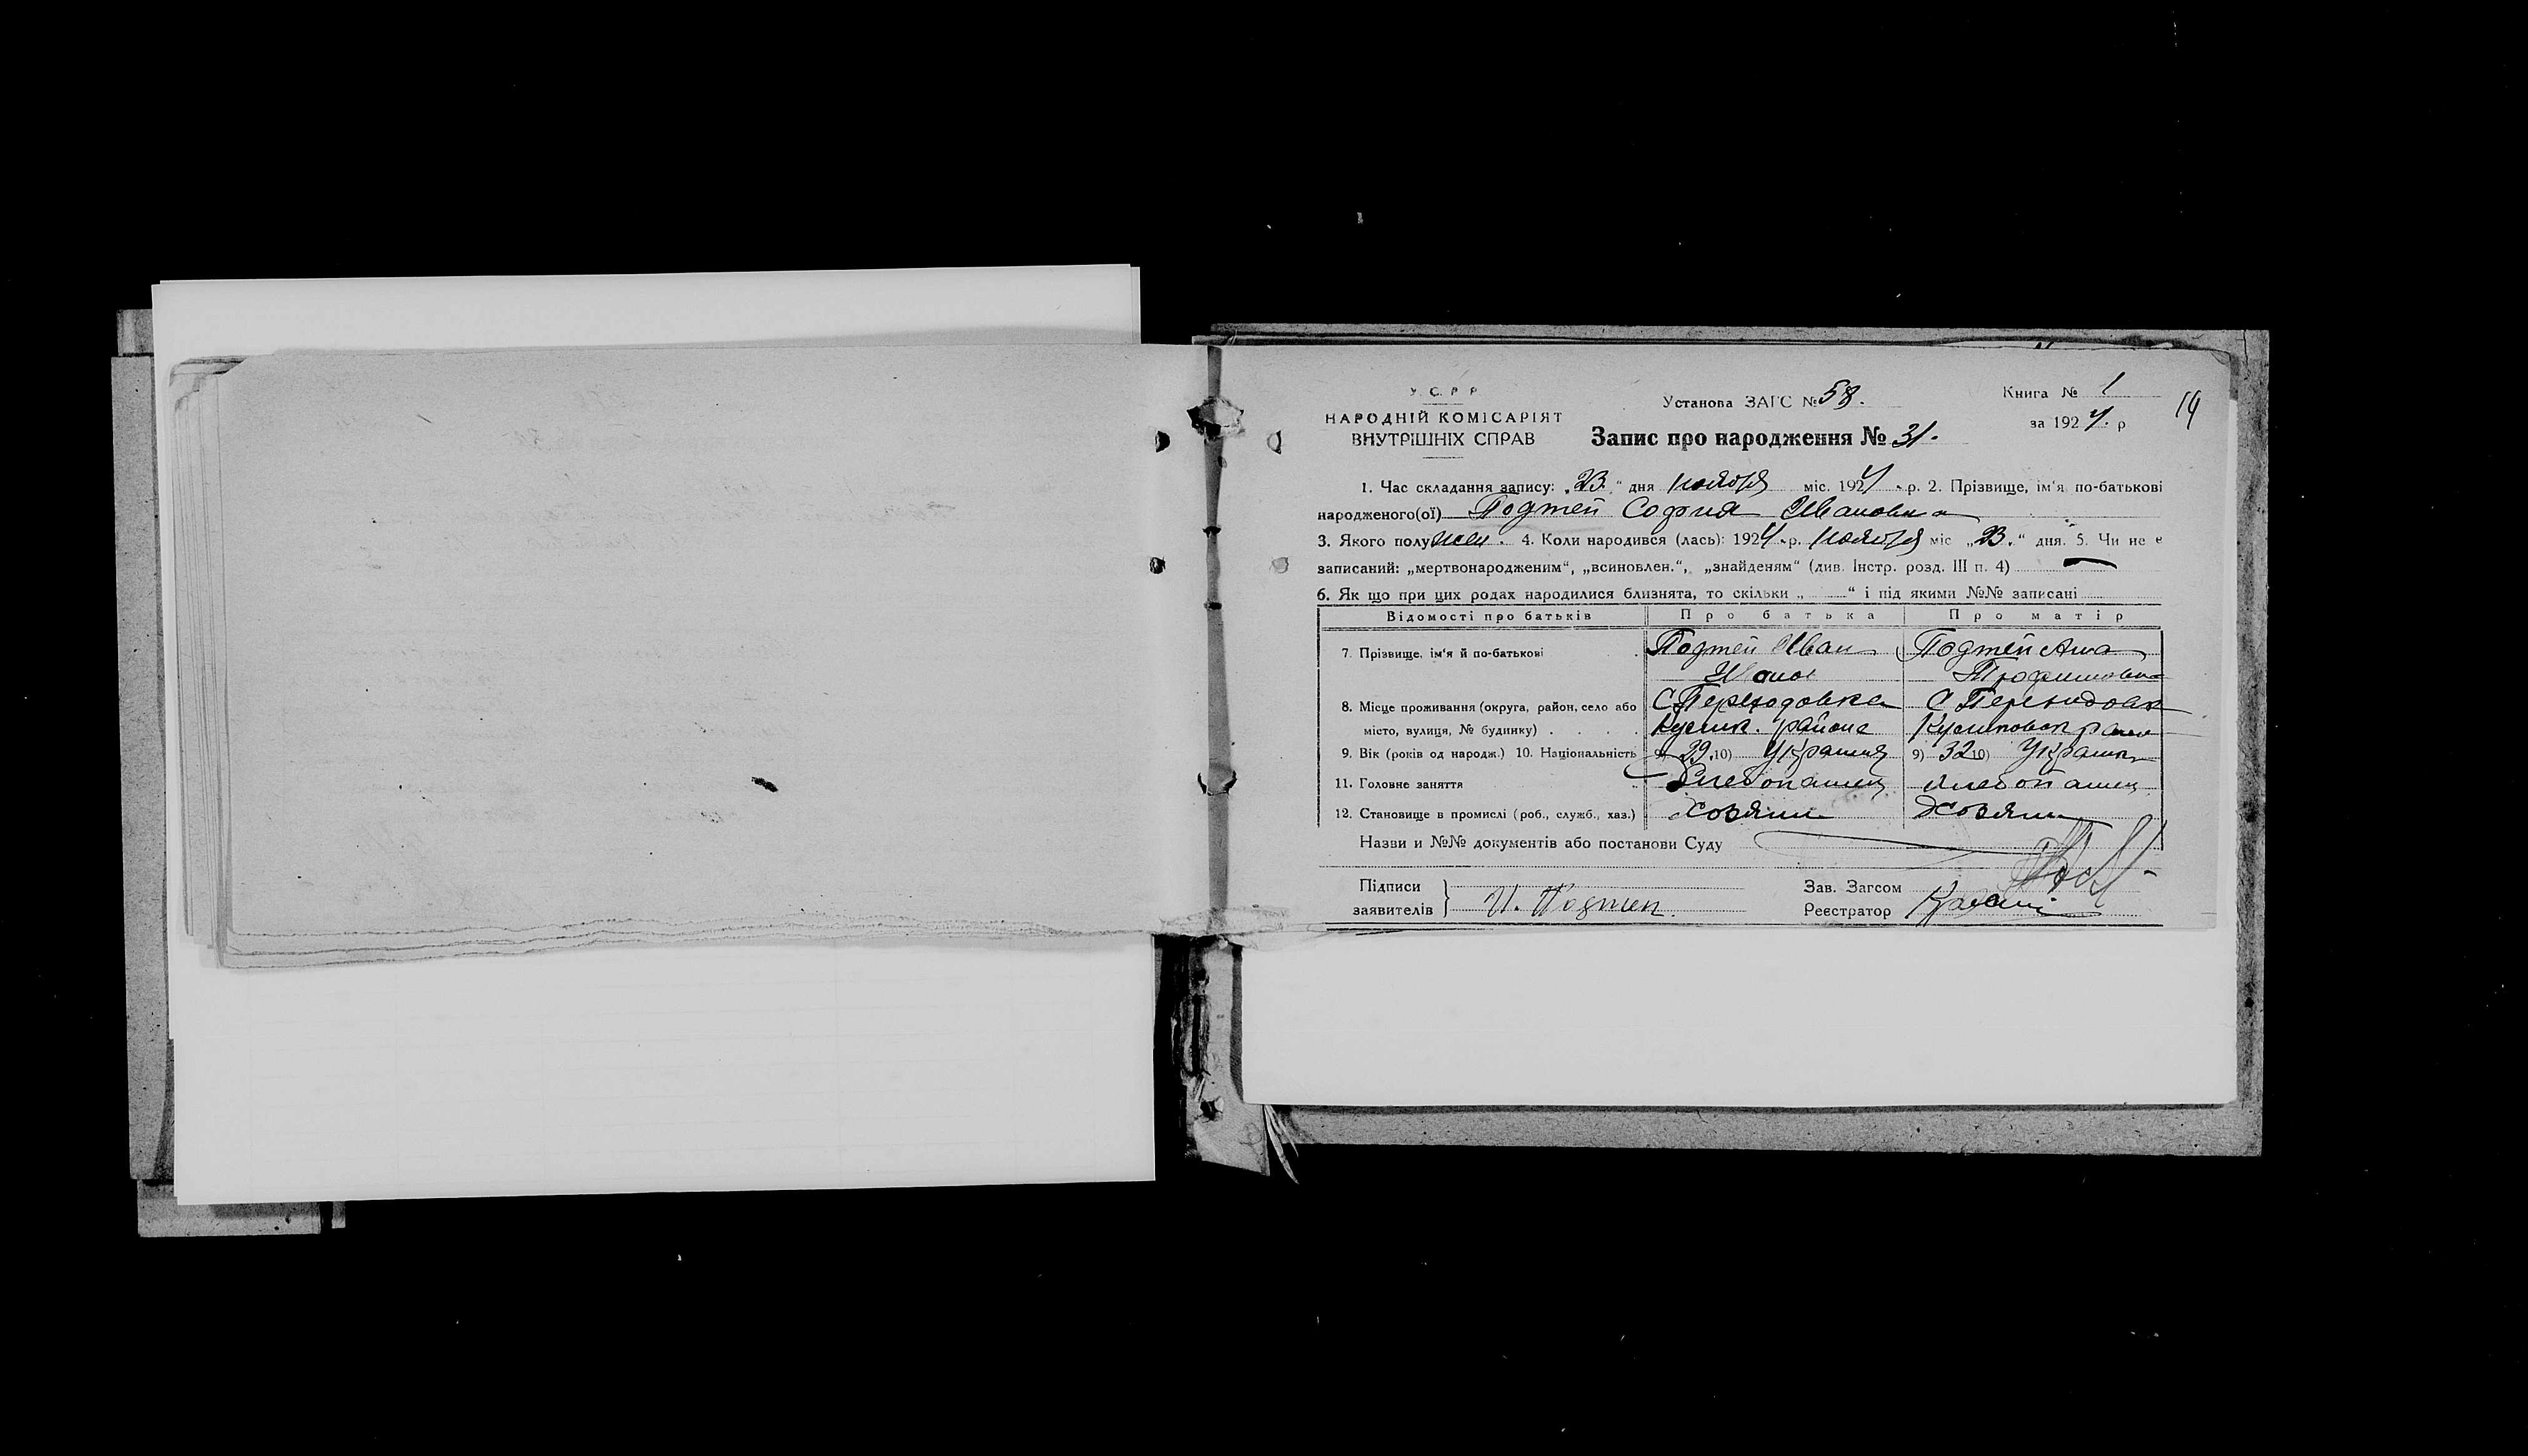 У. С. Р. Р
НАРОДНІЙ КОМІСАРІЯТ
ВНУТРІШНІХ СПРАВ
Установа ЗАГС № 58.
Запис про народження № 31.
Книга № 1
за 1924. р
1. Час складання запису: „23.“ дня ноября міс. 1924 р. 2. Прізвище, ім'я по-батькові
народженого(ої) Подтей София Ивановна
3. Якого полу жен. 4. Коли народився (лась): 1924 р. ноября міс „23.“ дня. 5. Чи не е
записаний: „мертвонародженим“, „всиновлен.“, „знайденям“ (див. Інстр. розд. III п. 4) —
6. Як що при цих родах народилися близнята, то скільки „ “ і під якими №№ записані
Відомості про батьків Про батька Про матір
7. Прізвище, ім'я й по-батькові Подтей Иван Подтей Анна
Иванов Трофимовна
8. Місце проживання (округа, район, село або С Переходовка С Переходовк
місто, вулиця, № будинку) района
9. Вік (років од народж.) 10. Національність 9) 39. 10) Украинец 9) 32 10) Украин
11. Головне заняття Хлебопашец хлебопашец
12. Становище в промислі (роб., служб., хаз.) хозяин хозяин
Назви и №№ документів або постанови Суду
Підписи
заявителів } И. Подтей.
Зав. Загсом
Реєстратор